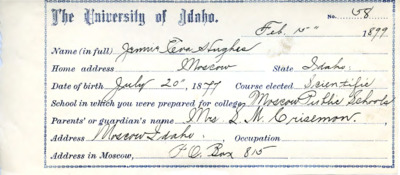 The University of Idaho.
No. 58
Feb. 1899
Name (in full) Eva Hughes
Home address Moscow State Idaho.
Date of birth July 20" 1877 Course elected Scientific
School in which you were prepared for college, Moscow Public Schools
Parents' or guardian's name Mrs S. M. Crisemon.
Address Moscow Idaho. Occupation
Address in Moscow, P.O. Box 815